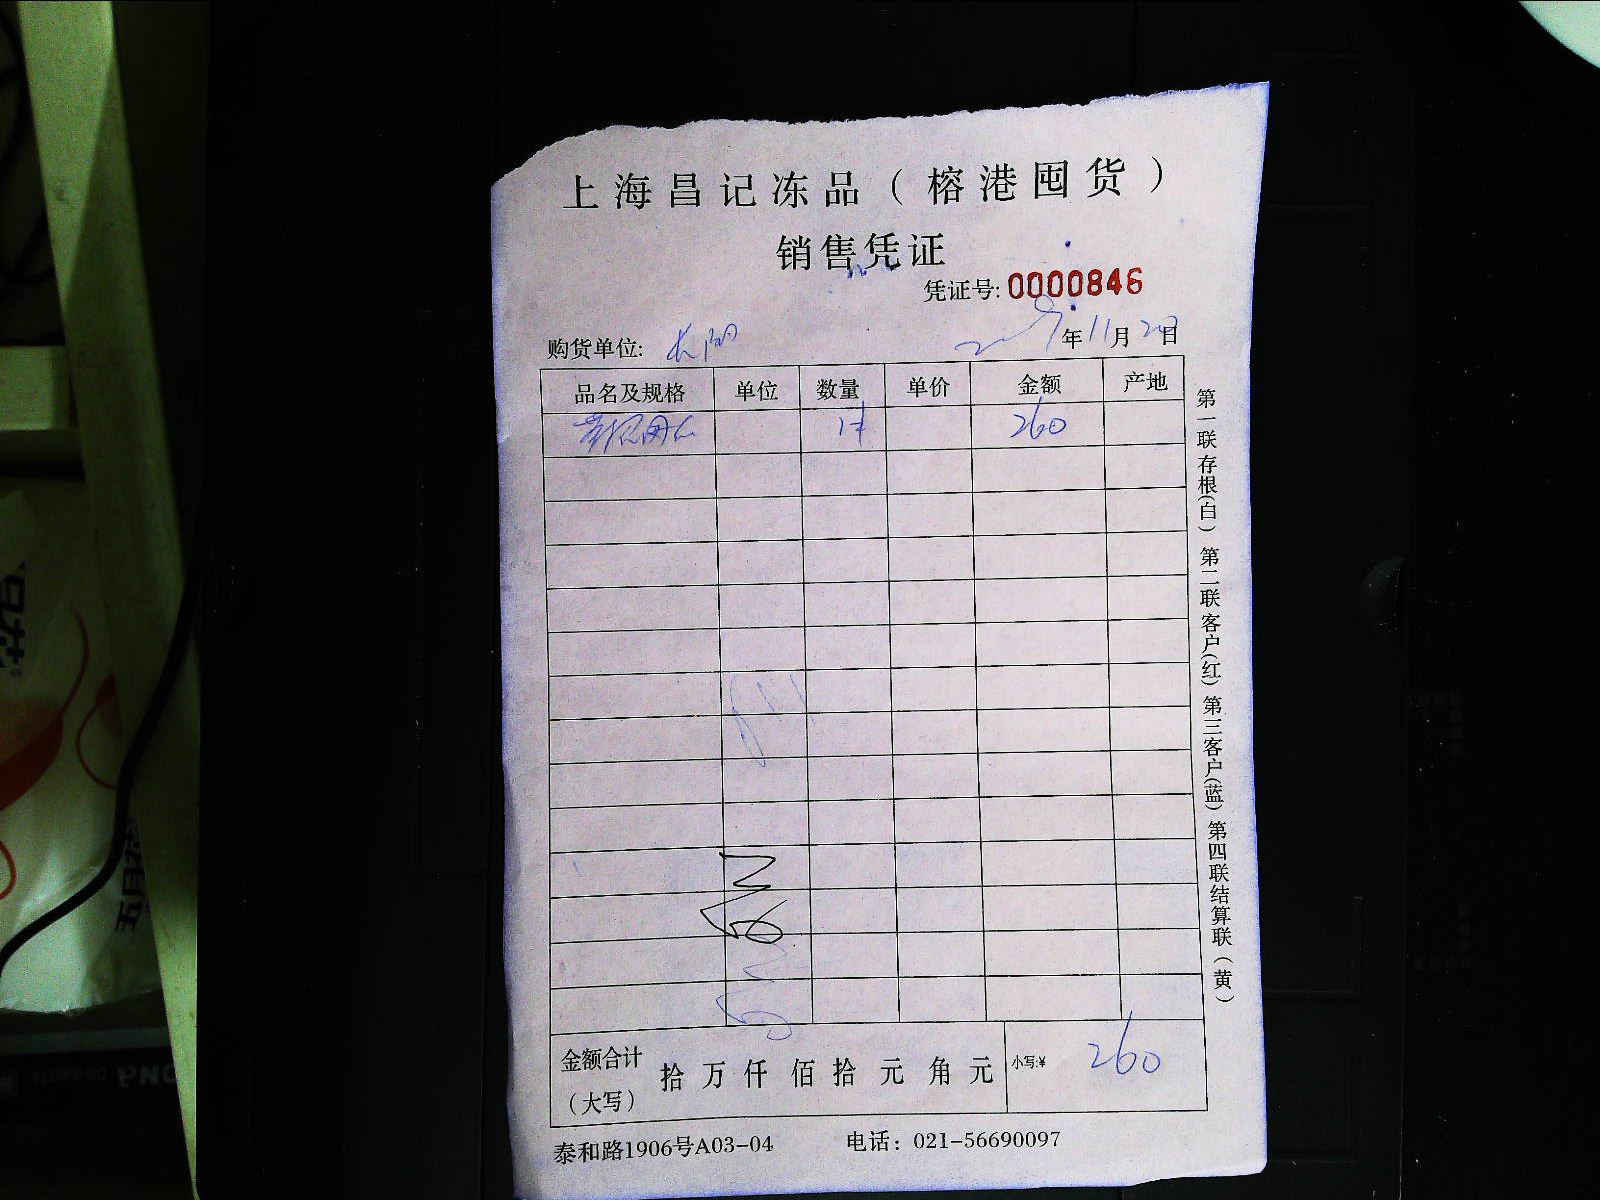 上海昌记冻品（榕港囤货）
销售凭证
凭证号: 0000846
购货单位: 长阳 年11月20日
品名及规格 单位 数量 单价 金额 产地
1件 260
金额合计（大写） 拾 万 仟 佰 拾 元 角 元 小写:¥ 260
泰和路1906号A03-04 电话：021-56690097
第一联存根(白) 第二联客户(红) 第三客户(蓝) 第四联结算联（黄）